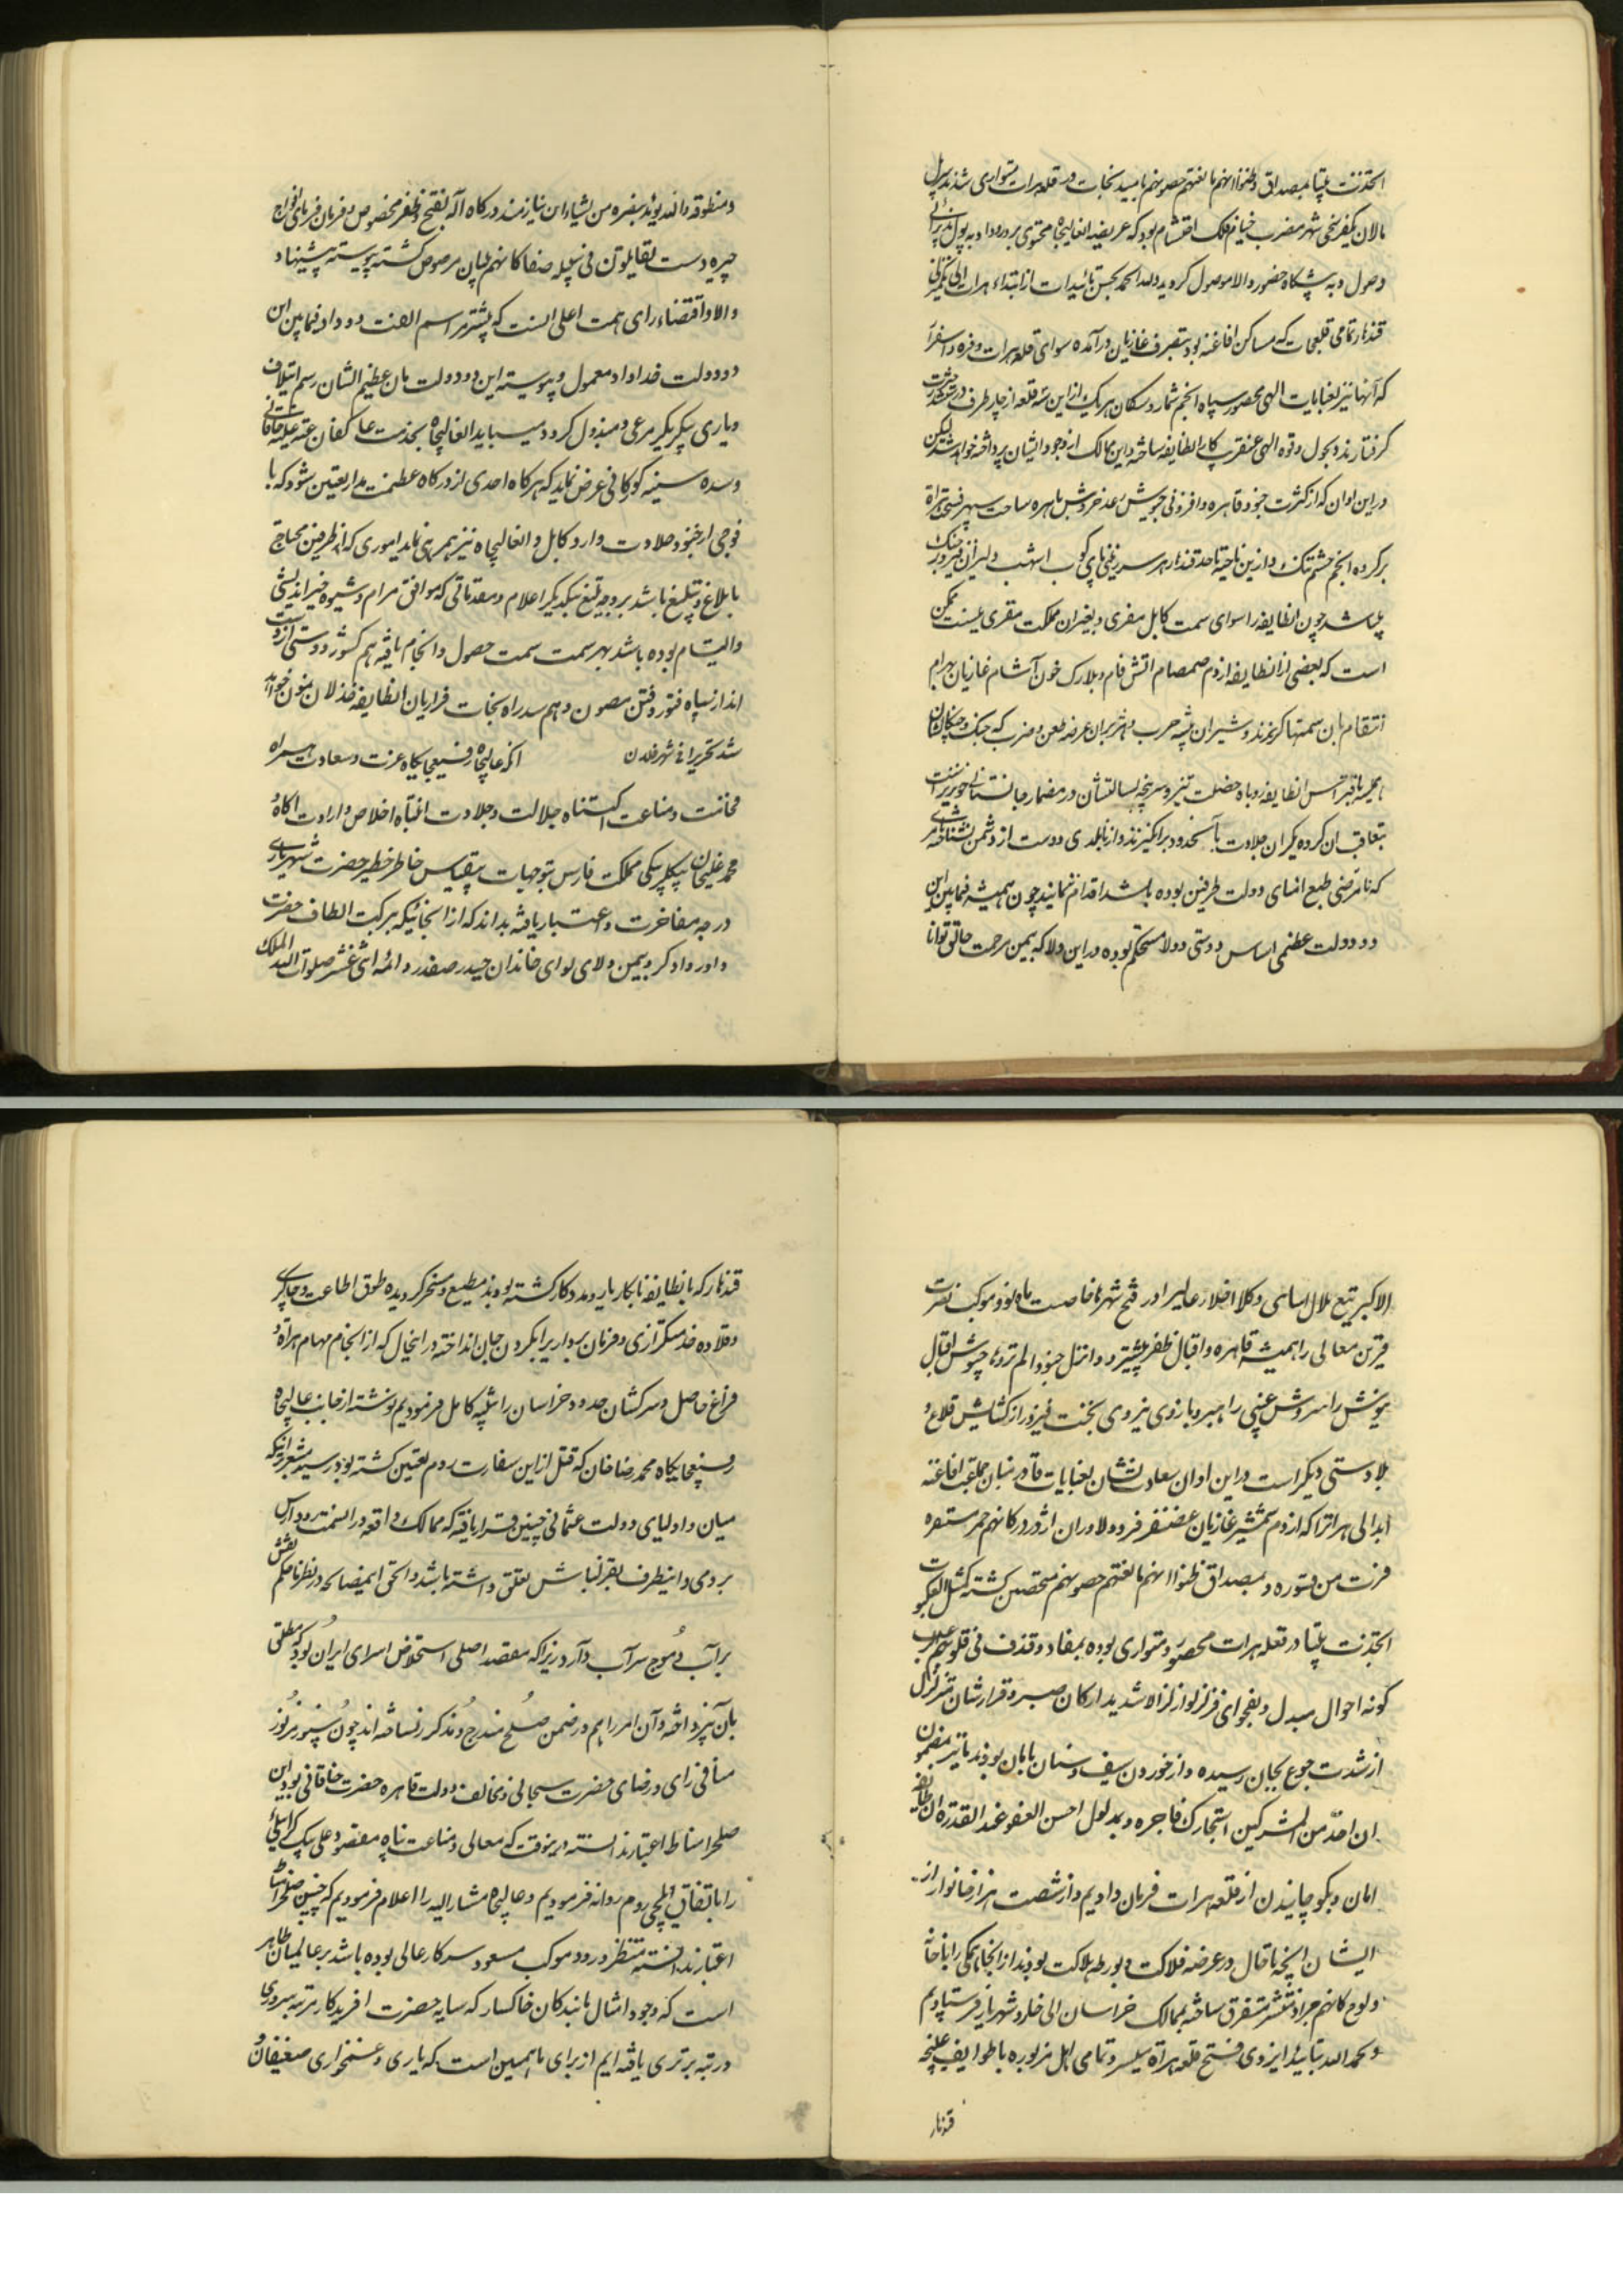 اتخذت بیتا بمصداق وظنوا انهم مانعتهم حصونهم بامید نجات در قلعه هرات متواری شدند پل
مالان یکفرسخی شهر مضرب خیام فلک احتشام بود که عریضه انعالیجاه محتوی بر ورود او به پول
وصول و به پیشگاه حضور والا موصول گردید ولله الحمد بحسن تائیدات از ابتداء هرات الی
قندهار تمامی قلعجات که مساکن افاغنه بود بتصرف غازیان درآمده سوای قلعه هرات و فره و اسفزار
که آنها نیز بعنایات الهی محصور سپاه انجم شمار و سکان هر یک از این سه قلعه از چار طرف در
گرفتارند و بحول و قوه الهی عنقریب کار انطایفه ساخته و این ممالک از وجود ایشان پرداخته خواهد شد لیکن
در این اوان که از کثرت جنود قاهره و افزونی جیوش رعد خروش باهره ساحت سپهر فسحت هراة
بر گروه انجم حشم تنک و از این ناحیه تا حد قندهار هر سرزمینی پای کوب اشهب دلیران فیروز جنک
میباشد چون انطایفه را سوای سمت کابل مفری و بغیر ان مملکت مقری نیست ممکن
است که بعضی از انطایفه از دم صمصام اتش فام و بلارک خون آشام غازیان بهرام
انتقام بان سمتها گریزند و شیران بیشه حرب و هژبران عرصه طعن و ضرب که
انطایفه روباه خصلت تیز و سرپنجه بسالتشان در مضمار جانستانی خونریز است
بتعاقب ان گروه یکران جلادت بآنحدود برانگیزند و از نابلدی دوست از دشمن نشناخته
که نامرضی طبع امنای دولت طرفین بوده باشد اقدام نمایند چون همیشه فیمابین این
دو دولت عظمی اساس دوستی و ولا مستحکم بوده در این ولا که بیمن مرحمت خالق توانا
و منطوقه والله یوید بنصره من یشاء این نیازمند درگاه آله بفتح و ظفر مخصوص و فرمان فرمای افواج
چیره دست یقاتلون فی سبیله صفا کانهم بنیان مرصوص گشته پیوسته پیشنهاد
والا و اقتضاء رای همت اعلی انست که بیشتر مراسم الفت و وداد فیمابین این
دو دولت خداداد معمول و پیوسته این دو دولت مان عظیم الشان رسم ایتلاف
و یاری یکدیگر مرعی و مبذول گردد میباید انعالیجاه بخدمت عاکفان عتبه علیه خاقانی
و سده سنیه گورکانی عرض نماید که هرگاه احدی از درگاه عظمت مدار تعیین شود که با
فوجی از جنود جلادت وارد کابل و انعالیجاه نیز همرهی نماید اموری که از طرفین محتاج
بابلاغ و تبلیغ باشد بر وجه بلیغ بیکدیگر اعلام و مقدماتی که موافق مرام و شیوه خیراندیشی
والتیام بوده باشد بهر سمت سمت حصول و انجام یافته هم کشور دوستی از
انداز سپاه فتور و فتن مصون و هم سد راه نجات فراریان انطایفه خذلان نمون خواهد
شد تحریرا فی شهر فلان      آنکه عالیجاه رفیعجایگاه عزت و سعادت همراه
فخامت و مناعت اکتناه جلالت و جلادت انتباه اخلاص و ارادت آگاه
محمد علیخان بیگلربیکی مملکت فارس بتوجهات بیقیاس خاطر خطیر حضرت شهریاری
درجه مفاخرت و اعتبار یافته بداند که از انجائیکه ببرکت الطاف حضرت
داور دادگر و بیمن ولای لوای خاندان حیدر صفدر و ائمه اثنی عشر صلوات الله الملک
الاکبر تیغ هلال اسای وکلا افلاک مدار عالیرا در فتح شهرها خاصیت ماه نو و موکب نصرت
قرین معالی را همیشه قاهره و اقبال ظفر پیشرو و انزل جنودا لم تروها جیوش اقبال
یورش را سروش غیبی راهبر و بازوی نیروی بخت فیروز را از گشایش قلاع و
بلاد دستی دیگر است در این اوان سعادت نشان بعنایات قادر منان جماعه افاغنه
ابدالی هراترا که از دم شمشیر غازیان غضنفر فر و دلاوران اژدردر کانهم حمر مستنفره
فرت من قسوره و بمصداق ظنوا انهم مانعتهم حصونهم متحصن گشته کمثل العنکبوت
اتخذت بیتا در قلعه هرات محصور و متواری بوده بمفاد و قذف فی قلوبهم الرعب
گونه احوال مبدل و بفحوای فزلزلوا زلزالا شدیدا ارکان صبر و قرارشان متزلزل
از شدت جوع بجان رسیده و از خوردن سیف و سنان بامان بودند بنابر مضمون
ان احد من المشرکین استجارک فاجره و بمدلول احسن العفو عند القدرة ان طایفه
امان و بکوچانیدن از قلعه هرات فرمان دادیم و از شصت هزار خانوار از
ایشان انچه تا حال در عرضه فلاکت و بورطه هلاکت بودند از انجا همگی را با خانه
و لوح کانهم جراد منتشر متفرق ساخته بممالک خراسان الی خار و شهریار فرستادیم
و بحمد الله بتائید ایزدی فتح قلعه هراة میسر و تمامی اهل مزبوره با طوایف غلیجه
قندهار
قندهار که بانطایفه نابکار یار و مددکار گشته بودند مطیع و مسخر گردیده طوق اطاعت و چاکری
و قلاده خدمتگزاری و فرمان برداریرا بگردن جان انداخته در اینحال که از انجام مهام هراة
فراغ حاصل و سرکشان حدود خراسان را تنبیه کامل فرمودیم نوشته از جانب عالیجاه
رفیعجایگاه محمد رضا خان که قبل از این بسفارت روم تعیین گشته بود رسید مشعر بر اینکه
میان و اولیای دولت عثمانی چنین قرار یافته که ممالک واقعه در انسمت رود ارس
برومی و اینطرف بقزلباش تعلق داشته باشد والحق ایمصالحه در نظرها حکم نقش
بر آب و موج سراب دارد زیرا که مقصد اصلی استخلاص اسرای ایران بود که مطلق
بان نپرداخته و آن امر را هم در ضمن صلح مندرج و مذکور نساخته اند چون سپور مزبور
منافی رای و رضای حضرت سبحانی و مخالف دولت قاهره حضرت خاقانی بود این
صلحرا مناط اعتبار ندانسته در ینوقت که معالی و مناعت پناه معتصد علی بیک
را باتفاق ایلچی روم روانه فرمودیم و عالیجاه مشارالیه را اعلام فرمودیم که چنین صلحرا مناط
اعتبار ندانسته منتظر ورود موکب مسعود سرکار عالی بوده باشد بر عالمیان ظاهر
است که وجود امثال ما بندگان خاکسار که سایه حضرت آفریدگار بمرتبه سروری
و رتبه برتری یافته ایم از برای همین است که یاری و غمخواری ضعیفان